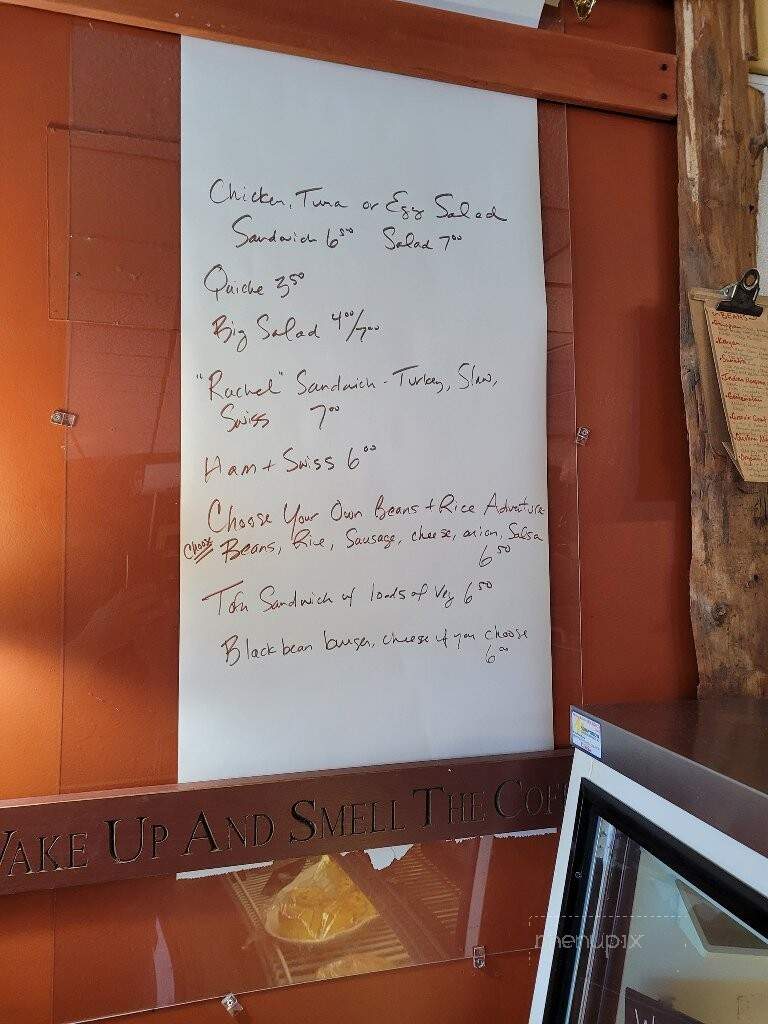 Chicken, Tuna or Egg Salad
Sandwich 6⁵⁰ Salad 7⁰⁰
Quiche 3⁵⁰
Big Salad 4⁰⁰/7⁰⁰
"Rachel" Sandwich - Turkey, Slaw,
Swiss 7⁰⁰
Ham + Swiss 6⁰⁰
Choose Your Own Beans + Rice Adventure
Choose Beans, Rice, Sausage, cheese, onion, Salsa
6⁵⁰
Tofu Sandwich w/ loads of Veg 6⁵⁰
Black bean burger, cheese if you choose
6⁰⁰
BEANS
Kenyan
Sumatra
WAKE UP AND SMELL THE COF
menupix